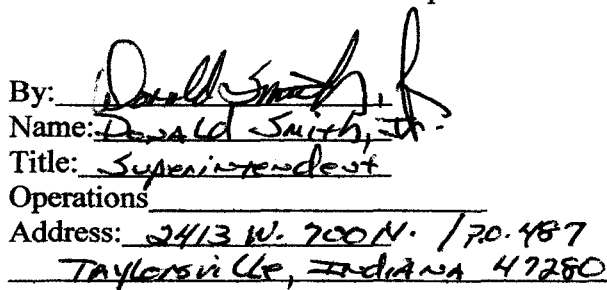 By: Donald Smith, Jr
Name: Donald Smith, Jr.
Title: Superintendent
Operations
Address: 2413 W. 700 N. / P.O. 487
Taylorsville, Indiana 47280